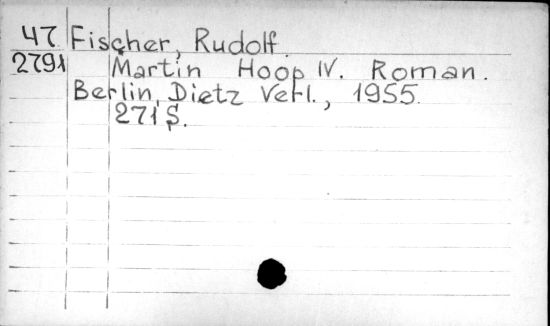 47 Fischer, Rudolf
2791 Martin Hoop IV. Roman.
Berlin, Dietz Verl., 1955.
271 S.